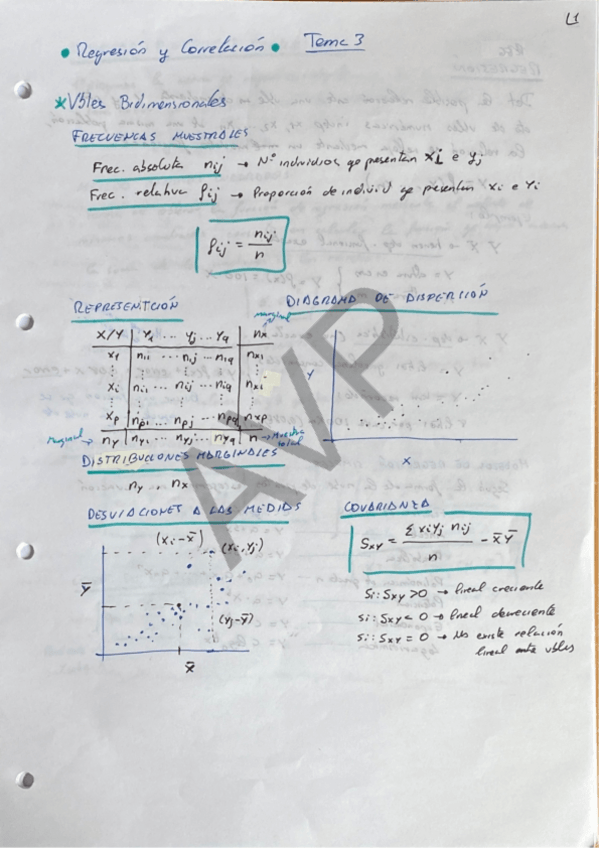 L1
• Regresión y Correlación • Tema 3
* Vbles Bidimensionales
FRECUENCIAS MUESTRALES
Frec. absoluta nij → Nº individuos qe presentan xi e yj
Frec. relativa fij → Proporción de individ qe presentan xi e Yi
fij = nij / n
REPRESENTCIÓN
marginal
X/Y | Y1 ... Yj ... Yq | nx
x1 | n11 ... nij ... n1q | nx1
⋮ ⋮ ⋮ ⋮ ⋮
xi | ni1 ... nij ... niq | nxi
⋮ ⋮ ⋮ ⋮ ⋮
xp | np1 ... npj ... npq | nxp
marginal → ny | ny1 ... nyj ... nyq | n → Muestra total
DIAGRAMA DE DISPERSIÓN
Y
X
DISTRIBUCIONES MARGINALES
ny .. nx
DESVIACIONES A LAS MEDIAS
(xi-x̄) (xi,yj)
ȳ
(yj-ȳ)
x̄
COVARIANZA
Sxy = Σ xiyj nij / n - x̄ ȳ
Si: Sxy > 0 → lineal creciente
si: Sxy < 0 → lineal decreciente
si: Sxy = 0 → No existe relación
lineal entre vbles
AVP